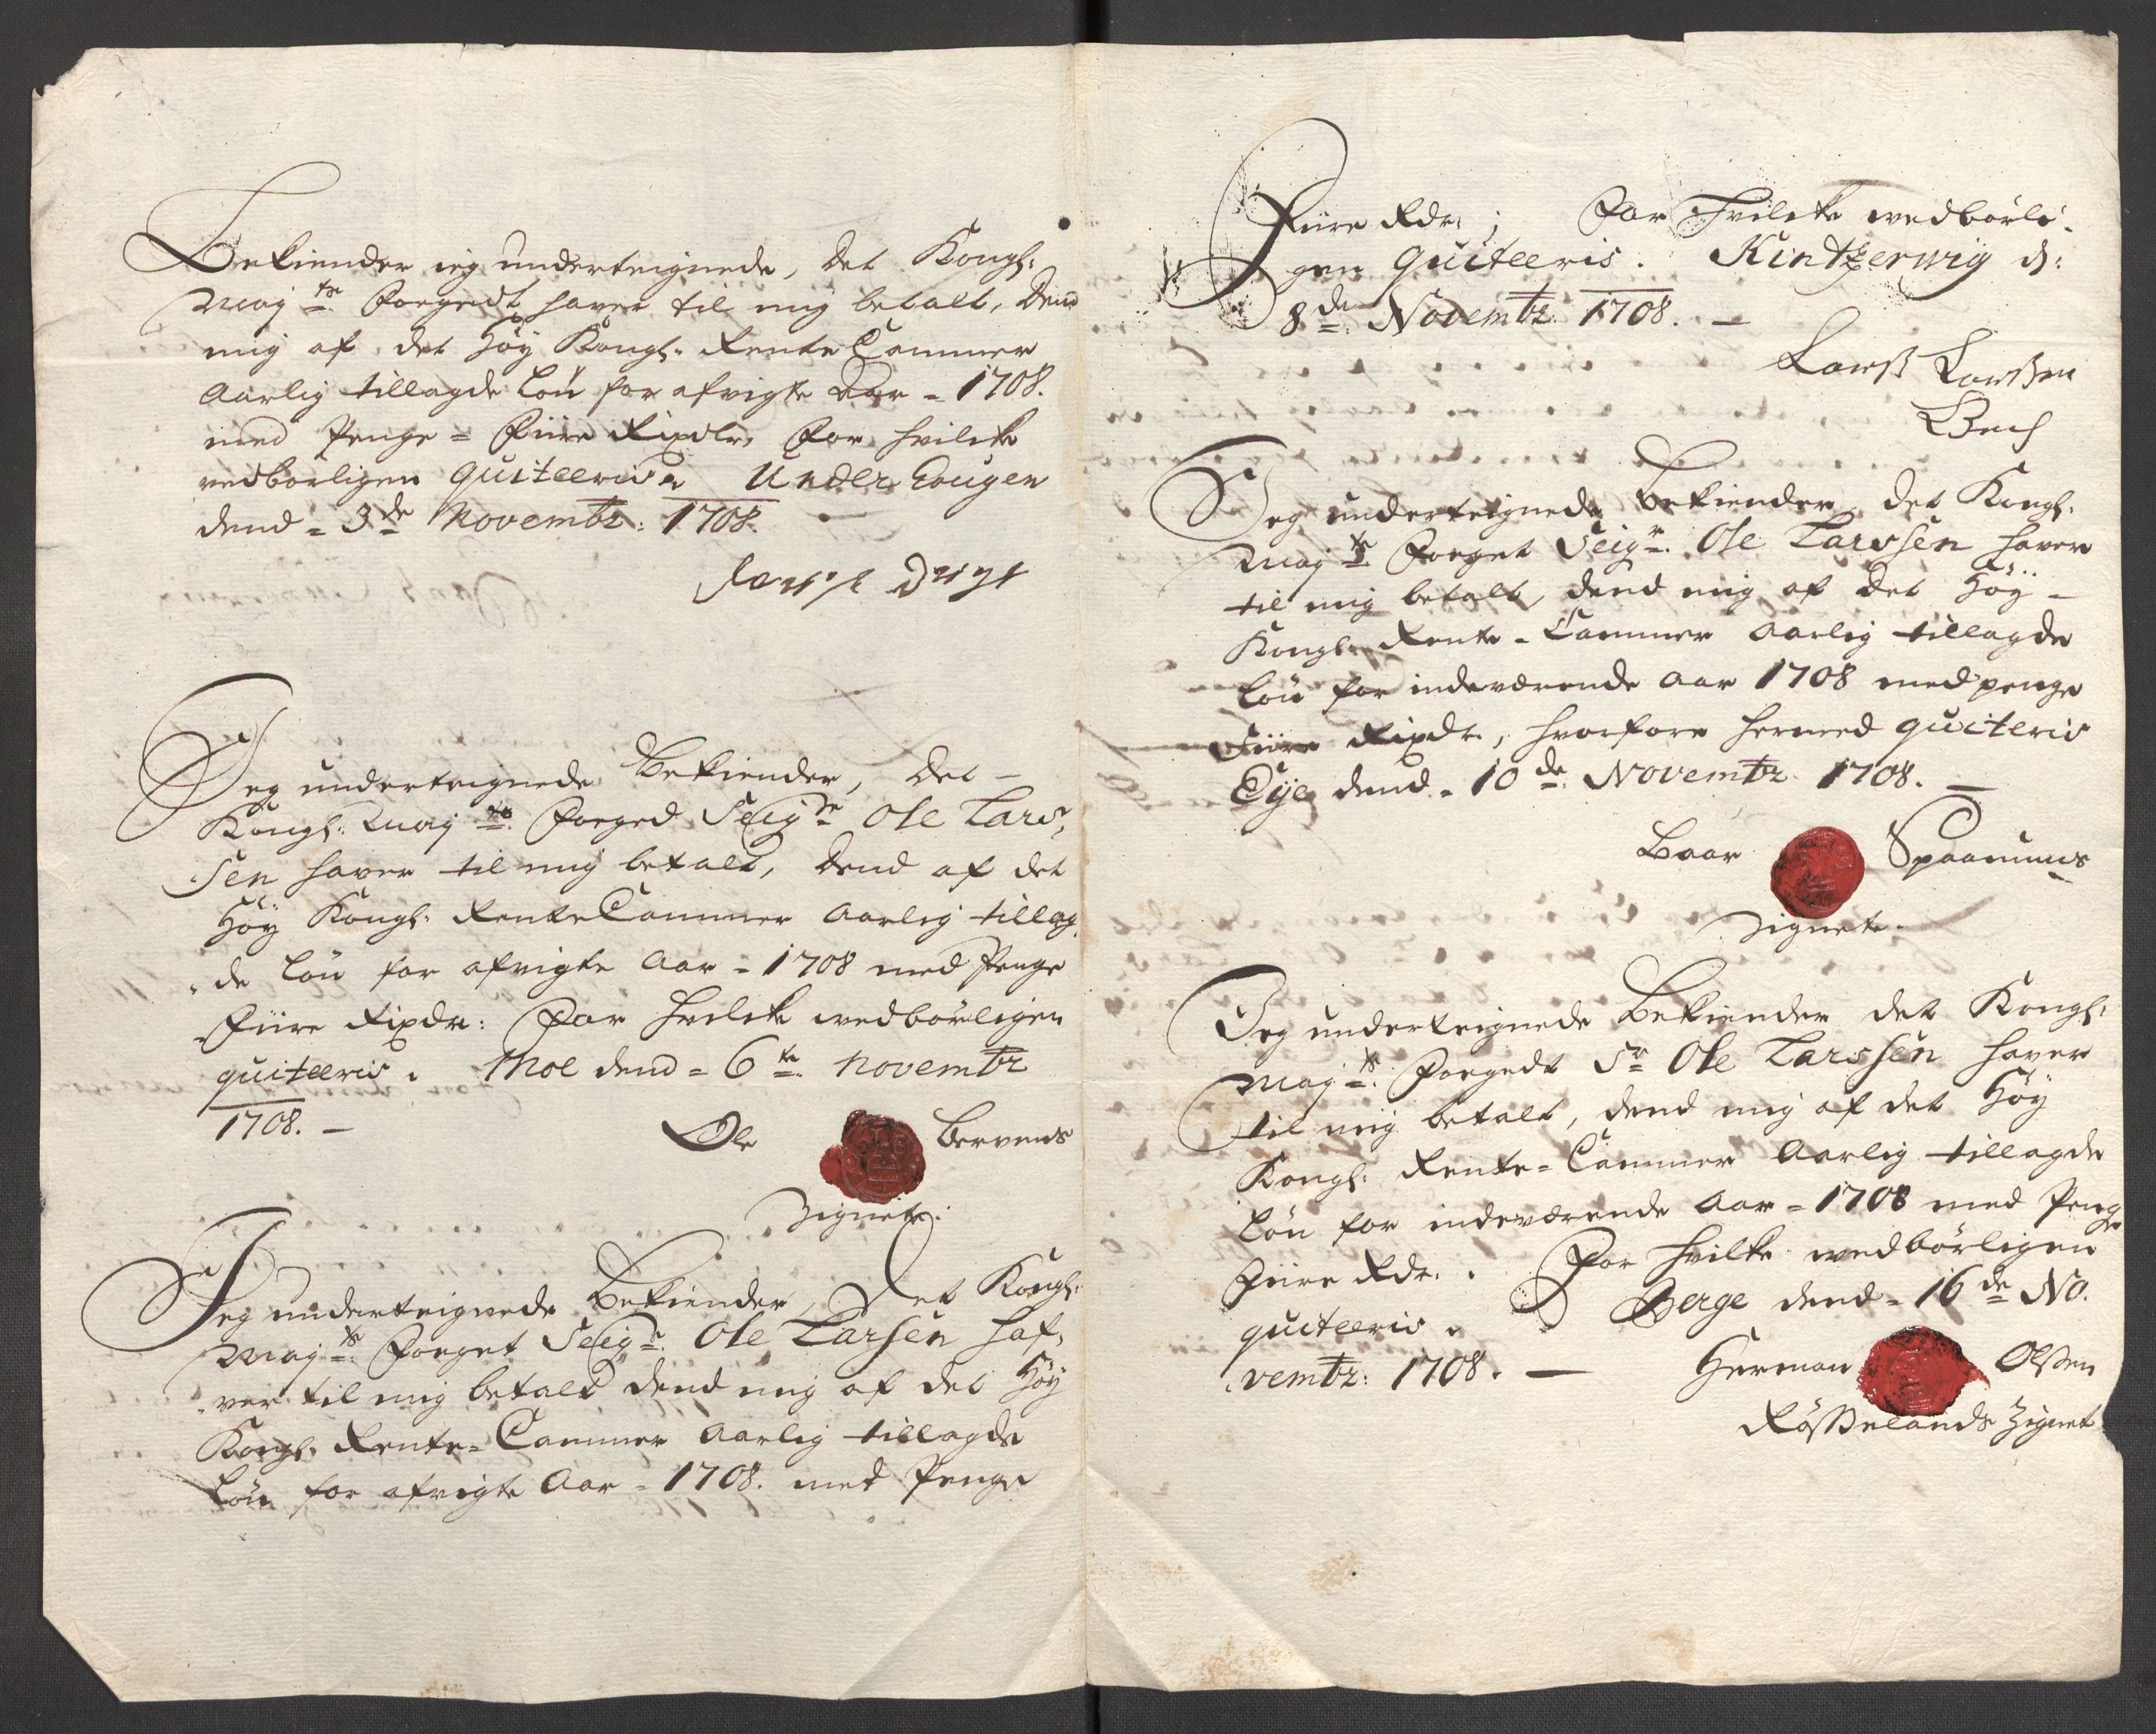 Bekiender ieg underteignede, det Kongl:
Maÿ.ts Fogedt haver til mig betalt, dend
mig af det Höÿ Kongl: Rente Cammer
Aarlig tillagde Lön for afvigte Aar = 1708.
med Penge = Fiire Rixdlr, For hvilcke
vedbörligen quiteeris. Under Hougen
dend = 3de Novembr: 1708.
Jeg underteignede Bekiender, det -
Kongl: Maÿ.ts Foged Seigr Ole Lars,
sen haver til mig betalt, dend af det
Höÿ Kongl: Rente Cammer Aarlig tillag,
de Lön for afvigte Aar = 1708 med Penge
Fiire Rixdr: For hvilcke vedbörligen
quiteeris. Moe dend = 6te Novembr
1708. -
Ole Bervens
Zignete.
Jeg underteignede Bekiender, Det Kongl:
Maÿ.ts Foget Seigr. Ole Larsen haf,
ver til mig betalt dend mig af det Höÿ
Kongl. Rente = Cammer Aarlig tillagde
Lön for afvigte Aar = 1708. med Penge
Fiire Rdr: ; For hvilcke vedbörli-
gen quiteeris. Kintzerwig d:
8de Novembr. 1708. -
Larss Larssen
Bech
Jeg underteignede Bekiender det Kongl:
Maÿ.ts Foget Seigr. Ole Larssen haver
til mig betalt, dend mig af det Höÿ -
Kongl. Rente = Cammer Aarlig tillagde
Lön for indeværende Aar 1708 med penge
Fiire Rixdr., hvorfore hermed quiteris
Eÿe dend = 10de Novembr. 1708. -
Baar Spaanums
Zignete.
Jeg underteignede Bekiender det Kongl:
Maÿ.ts Fogedt Sr Ole Larssen haver
til mig betalt, dend mig af det Höÿ
Kongl: Rente = Cammer Aarlig tillagde
Lön for indeværende Aar = 1708 med Penge
Fiire Rdr. . For hvilke vedbörligen
quiteeris. Berge dend = 16de No.
vembr: 1708. - Herman Olssen
Rösselands Zignet